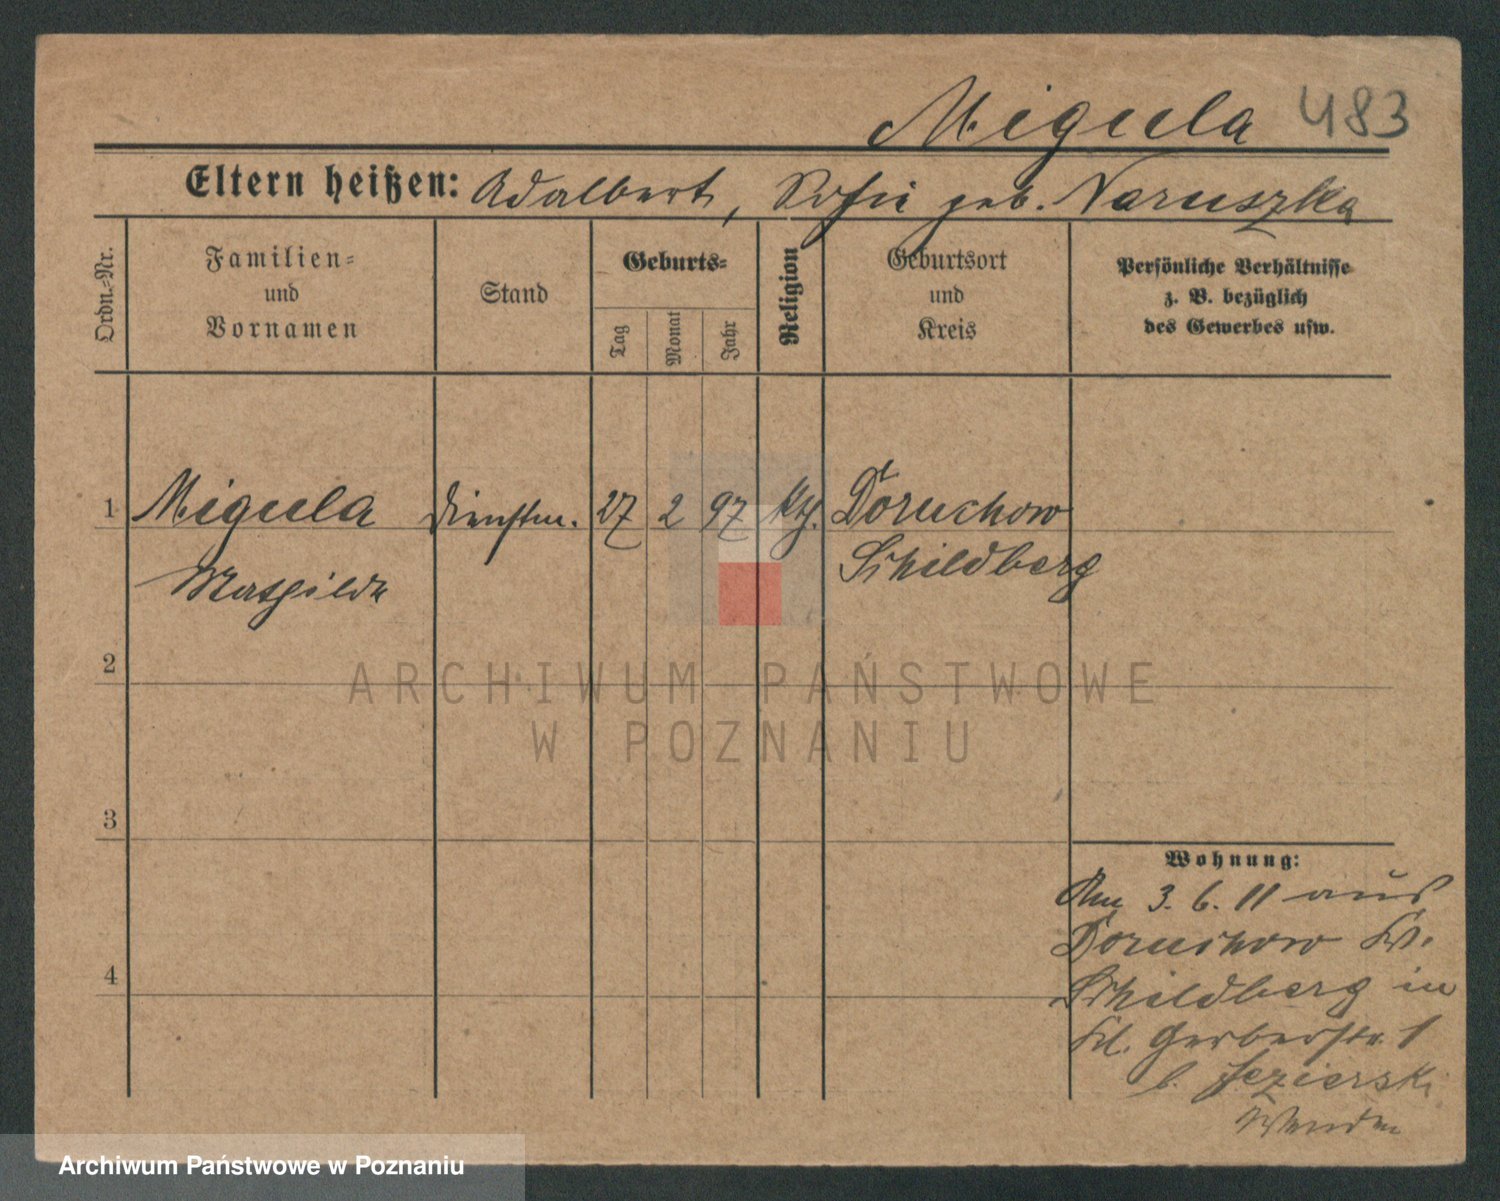 Migula 483
Eltern heißen: Adalbert, Sofie geb. Naruszka
Ordn.-Nr.
Familien-
und
Vornamen
Stand
Geburts-
Tag
Monat
Jahr
Religion
Geburtsort
und
Kreis
Persönliche Verhältnisse
z. B. bezüglich
des Gewerbes usw.
1 Migula Dienstm. 27 2 97 kth. Doruchow
Mathilde Schildberg
2
3
4
Wohnung:
Am 3. 6. 11 aus
Doruchow Kr.
Schildberg in
Kl. Gerberstr. 1
b. Jezierski
Wenden
ARCHIWUM PAŃSTWOWE
W POZNANIU
Archiwum Państwowe w Poznaniu